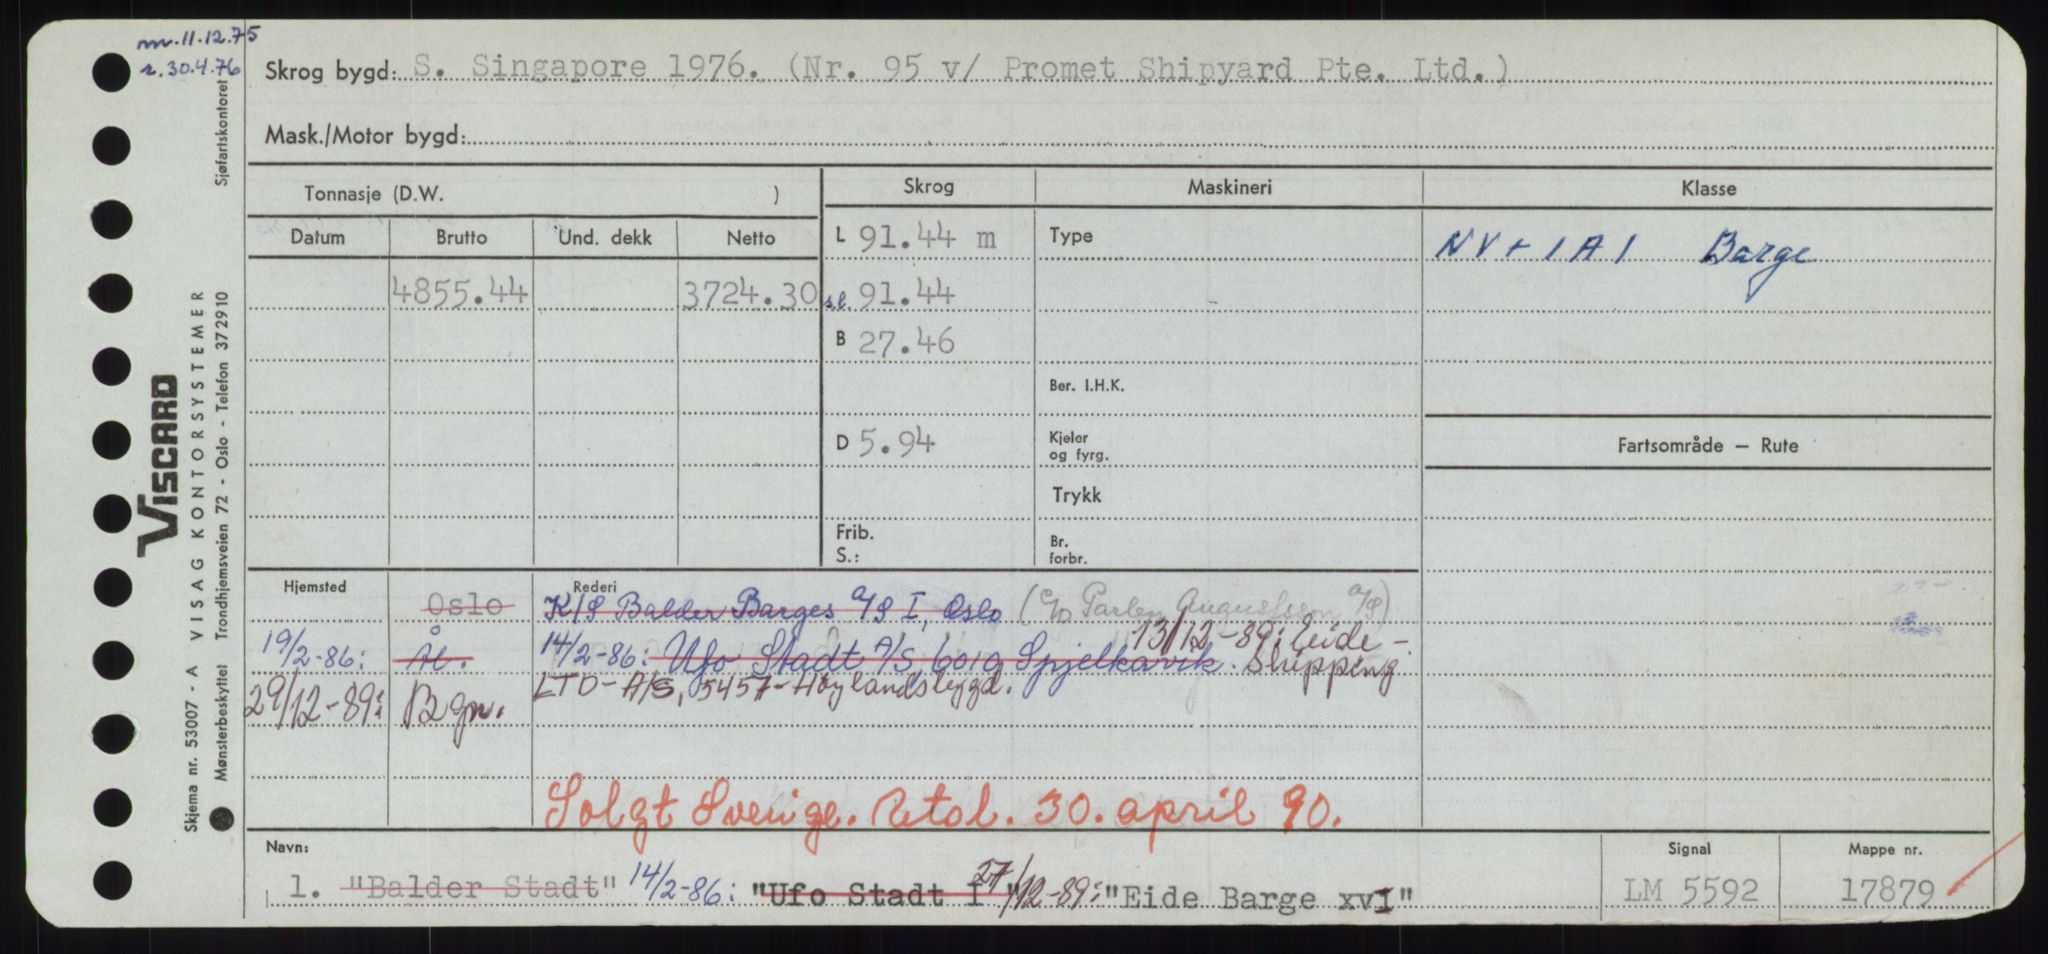 m. 11.12.75
r. 30.4.76
Skrog bygd: S. Singapore 1976. (Nr. 95 v/ Promet Shipyard Pte. Ltd.)
Mask./Motor bygd:
Tonnasje (D.W. )
Skrog Maskineri Klasse
Datum Brutto Und. dekk Netto
L 91.44 m Type NV + 1A1 Barge
4855.44 3724.30 s.l. 91.44
B 27.46
Ber. I.H.K.
D 5.94 Kjeler og fyrg. Fartsområde — Rute
Trykk
Frib. S.: Br. forbr.
Hjemsted Rederi
Oslo K/S Balder Barges A/S I, Oslo (c/o Parley Augustsson A/S)
19/2-86: Ål. 14/2-86: Ufo Stadt A/S 6019 Spjelkavik. 13/12-89: Eide - Shipping
29/12-89: Bgn. LTD - A/S, 5457-Høylandsbygd.
Solgt Sverige. Retol. 30. april 90.
Navn: Signal Mappe nr.
1. "Balder Stadt" 14/2-86: "Ufo Stadt I" 27/12-89: "Eide Barge xvI" LM 5592 17879
Skjema nr. 53007 - A VISAG KONTORSYSTEMER
VISCARD
Mønsterbeskyttet Trondhjemsveien 72 - Oslo - Telefon 372910 Sjøfartskontoret